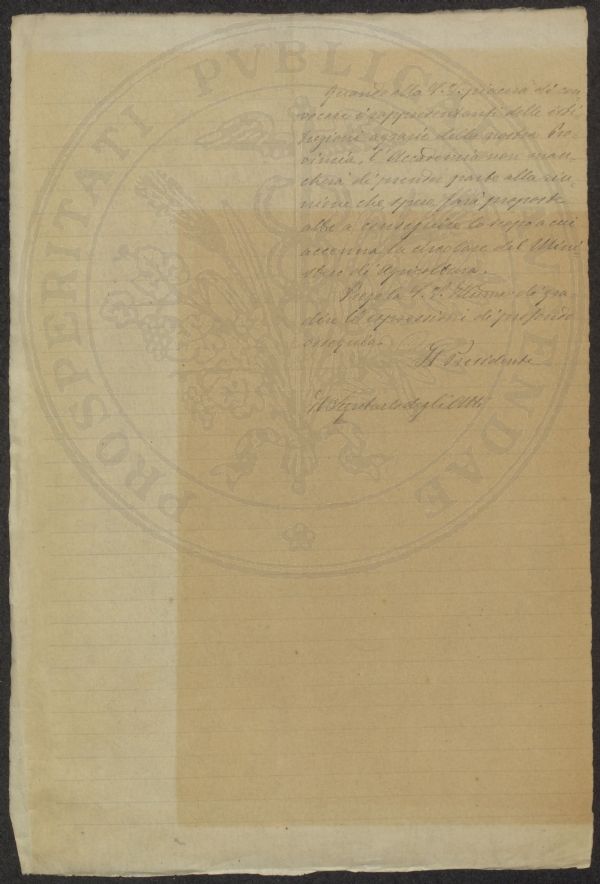 PROSPERITATI PVBLICAE AVGENDAE
Quando alla V. S. piacerà di con
vocare i rappresentanti delle isti
tuzioni agrarie della nostra Pro
vincia, l'Accademia non man
cherà di prender parte alla riu
nione che, spero, farà proposte
atte a conseguire lo scopo a cui
accenna la circolare del Mini
stero di Agricoltura.
Prego la S. V. Illuma di gra
dire le espressioni di profondo
ossequio.
Il Presidente
Il Segretario degli Atti